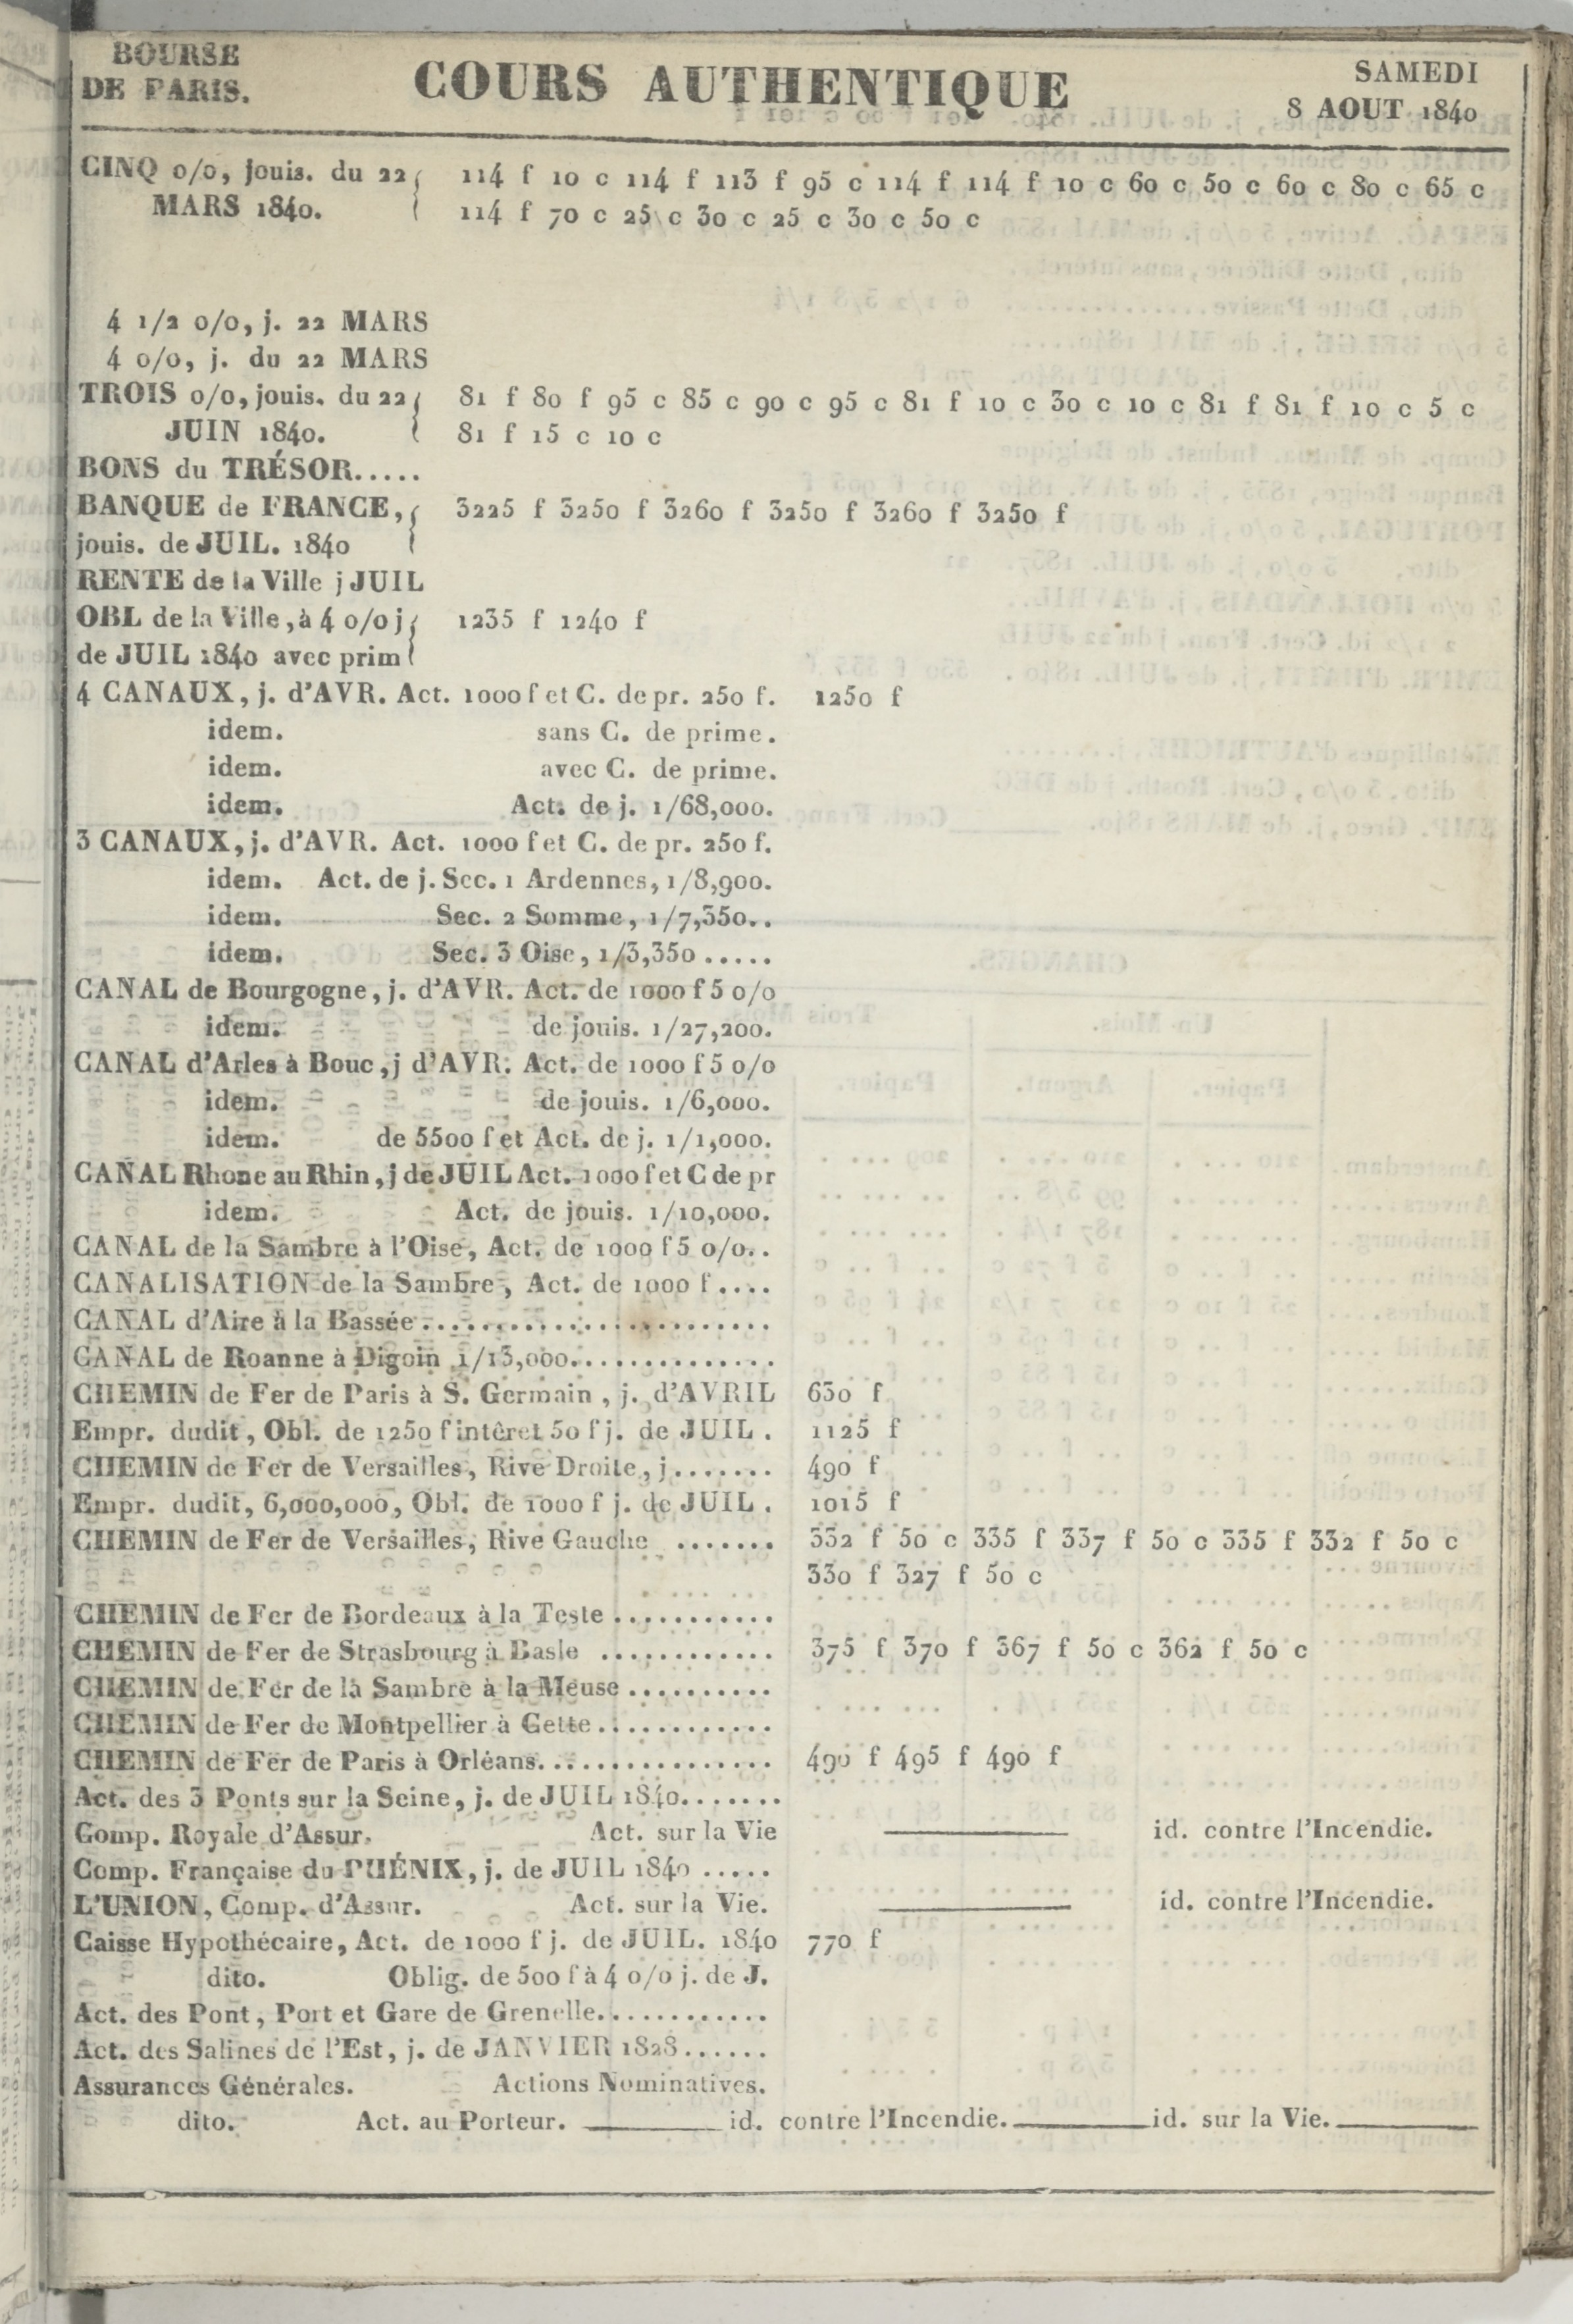 BOURSE
DE PARIS.
COURS AUTHENTIQUE
SAMEDI
8 AOUT 1840
CINQ 0/0, jouis. du 22 114 f 10 c 114 f 113 f 95 c 114 f 114 f 10 c 60 c 50 c 60 c 80 c 65 c
MARS 1840. 114 f 70 c 25 c 30 c 25 c 30 c 50 c
4 1/2 0/0, j. 22 MARS
4 0/0, j. du 22 MARS
TROIS 0/0, jouis. du 22 81 f 80 f 95 c 85 c 90 c 95 c 81 f 10 c 30 c 10 c 81 f 81 f 10 c 5 c
JUIN 1840. 81 f 15 c 10 c
BONS du TRÉSOR.....
BANQUE de FRANCE, 3225 f 3250 f 3260 f 3250 f 3260 f 3250 f
jouis. de JUIL. 1840
RENTE de la Ville j JUIL
OBL de la Ville, à 4 0/0 j 1235 f 1240 f
de JUIL 1840 avec prim
4 CANAUX, j. d'AVR. Act. 1000 f et C. de pr. 250 f. 1250 f
idem. sans C. de prime.
idem. avec C. de prime.
idem. Act. de j. 1/68,000.
3 CANAUX, j. d'AVR. Act. 1000 f et C. de pr. 250 f.
idem. Act. de j. Sec. 1 Ardennes, 1/8,900.
idem. Sec. 2 Somme, 1/7,350..
idem. Sec. 3 Oise, 1/3,350.....
CANAL de Bourgogne, j. d'AVR. Act. de 1000 f 5 0/0
idem. de jouis. 1/27,200.
CANAL d'Arles à Bouc, j d'AVR. Act. de 1000 f 5 0/0
idem. de jouis. 1/6,000.
idem. de 5500 f et Act. de j. 1/1,000.
CANAL Rhone au Rhin, j de JUIL Act. 1000 f et C de pr
idem. Act. de jouis. 1/10,000.
CANAL de la Sambre à l'Oise, Act. de 1000 f 5 0/0..
CANALISATION de la Sambre, Act. de 1000 f....
CANAL d'Aire à la Bassée........................
CANAL de Roanne à Digoin 1/13,000..............
CHEMIN de Fer de Paris à S. Germain, j. d'AVRIL 630 f
Empr. dudit, Obl. de 1250 f intêret 50 f j. de JUIL. 1125 f
CHEMIN de Fer de Versailles, Rive Droite, j....... 490 f
Empr. dudit, 6,000,000, Obl. de 1000 f j. de JUIL. 1015 f
CHEMIN de Fer de Versailles, Rive Gauche ....... 332 f 50 c 335 f 337 f 50 c 335 f 332 f 50 c
330 f 327 f 50 c
CHEMIN de Fer de Bordeaux à la Teste ...........
CHEMIN de Fer de Strasbourg à Basle ............ 375 f 370 f 367 f 50 c 362 f 50 c
CHEMIN de Fer de la Sambre à la Meuse ..........
CHEMIN de Fer de Montpellier à Cette............
CHEMIN de Fer de Paris à Orléans................ 490 f 495 f 490 f
Act. des 3 Ponts sur la Seine, j. de JUIL 1840.......
Comp. Royale d'Assur. Act. sur la Vie id. contre l'Incendie.
Comp. Française du PHÉNIX, j. de JUIL 1840 .....
L'UNION, Comp. d'Assur. Act. sur la Vie. id. contre l'Incendie.
Caisse Hypothécaire, Act. de 1000 f j. de JUIL. 1840 770 f
dito. Oblig. de 500 f à 4 0/0 j. de J.
Act. des Pont, Port et Gare de Grenelle............
Act. des Salines de l'Est, j. de JANVIER 1828......
Assurances Générales. Actions Nominatives.
dito. Act. au Porteur. id. contre l'Incendie. id. sur la Vie.